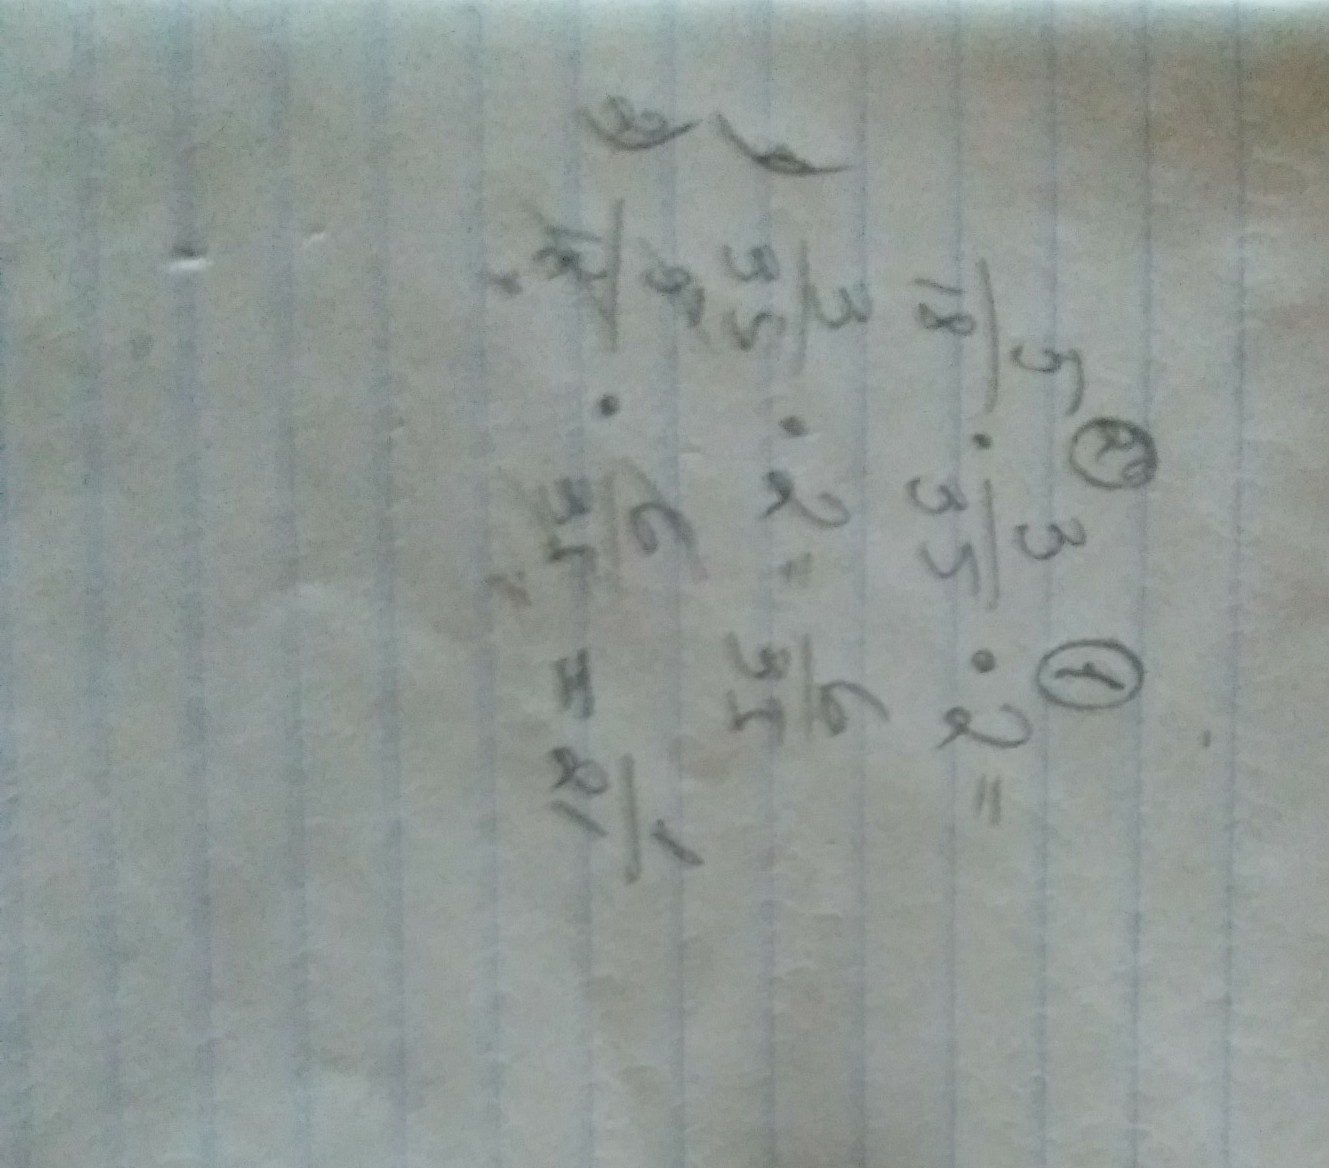 ② ①
5/18 · 3/35 · 2 =
1) 3/35 · 2 = 6/35
2) 5/18 · 6/35 = 1/21